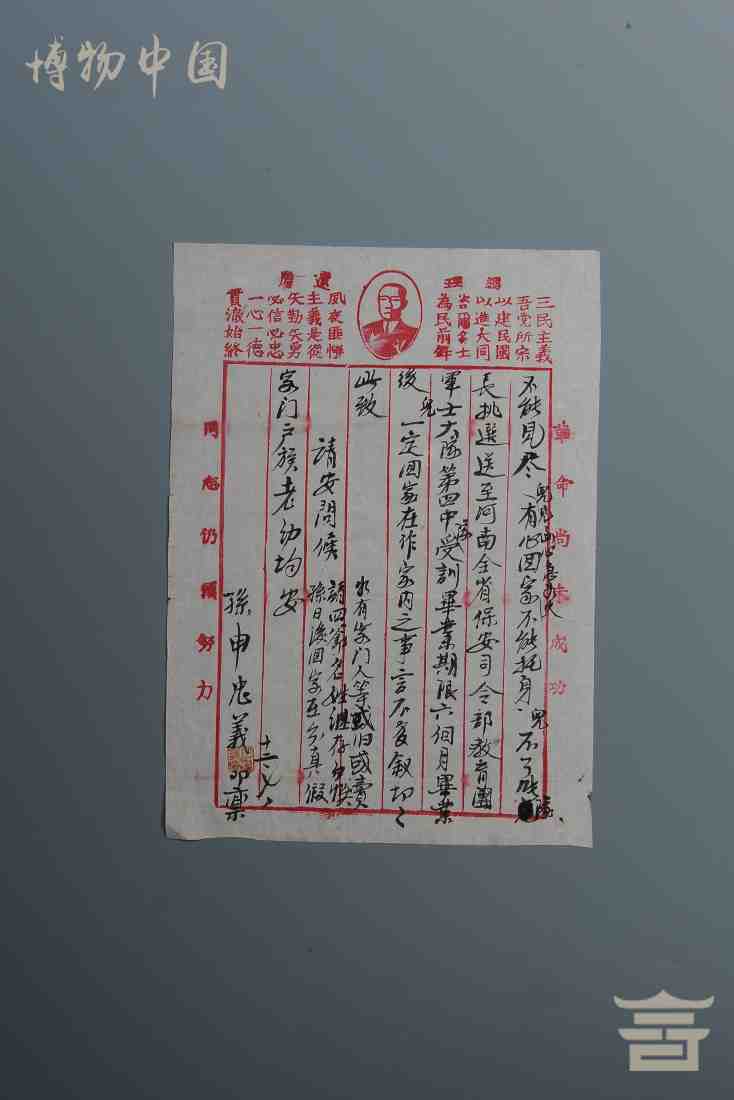 博物中国
總理
遺
三民主義
吾党所宗
以建民國
以進大同
咨爾多士
為民前鋒
夙夜匪懈
主義是從
矢勤矢勇
必信必忠
一心一德
貫澈始終
革命尚未成功
不能見尽、有心回家不能抚身兒不了
長挑選送至河南全省保安司令部教育團
軍士大隊第四中隊受訓畢業期限六個月畢業
後兒一定回家在作家內之事言不度叙切々
此致
請安問候
水有家门人等或旧或賣
請四節名姓
孫日後回家互分真假
家门户族老幼均安
孫申忠義叩稟
同志仍須努力